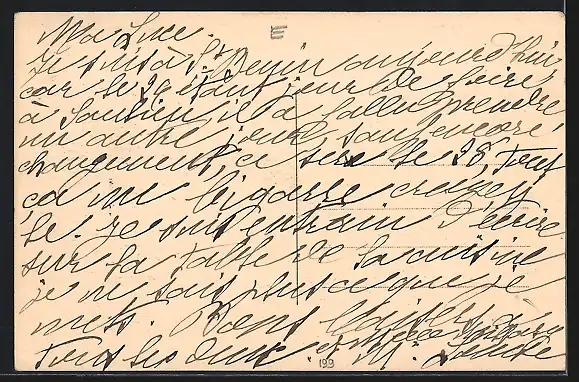 Ma Luce.
Je suis à St Denis aujourd'hui
car le 29 étant jour de foire
à Saulieu il a fallu prendre
un autre jour, sauf encore
changement, ce sera le 28, tout
ça me bigarre
le. Je suis entrain d'écrire
sur la table de la cuisine
je ne sais plus ce que je
mets. Bons baisers à
tous les deux. et
M. Louise
199